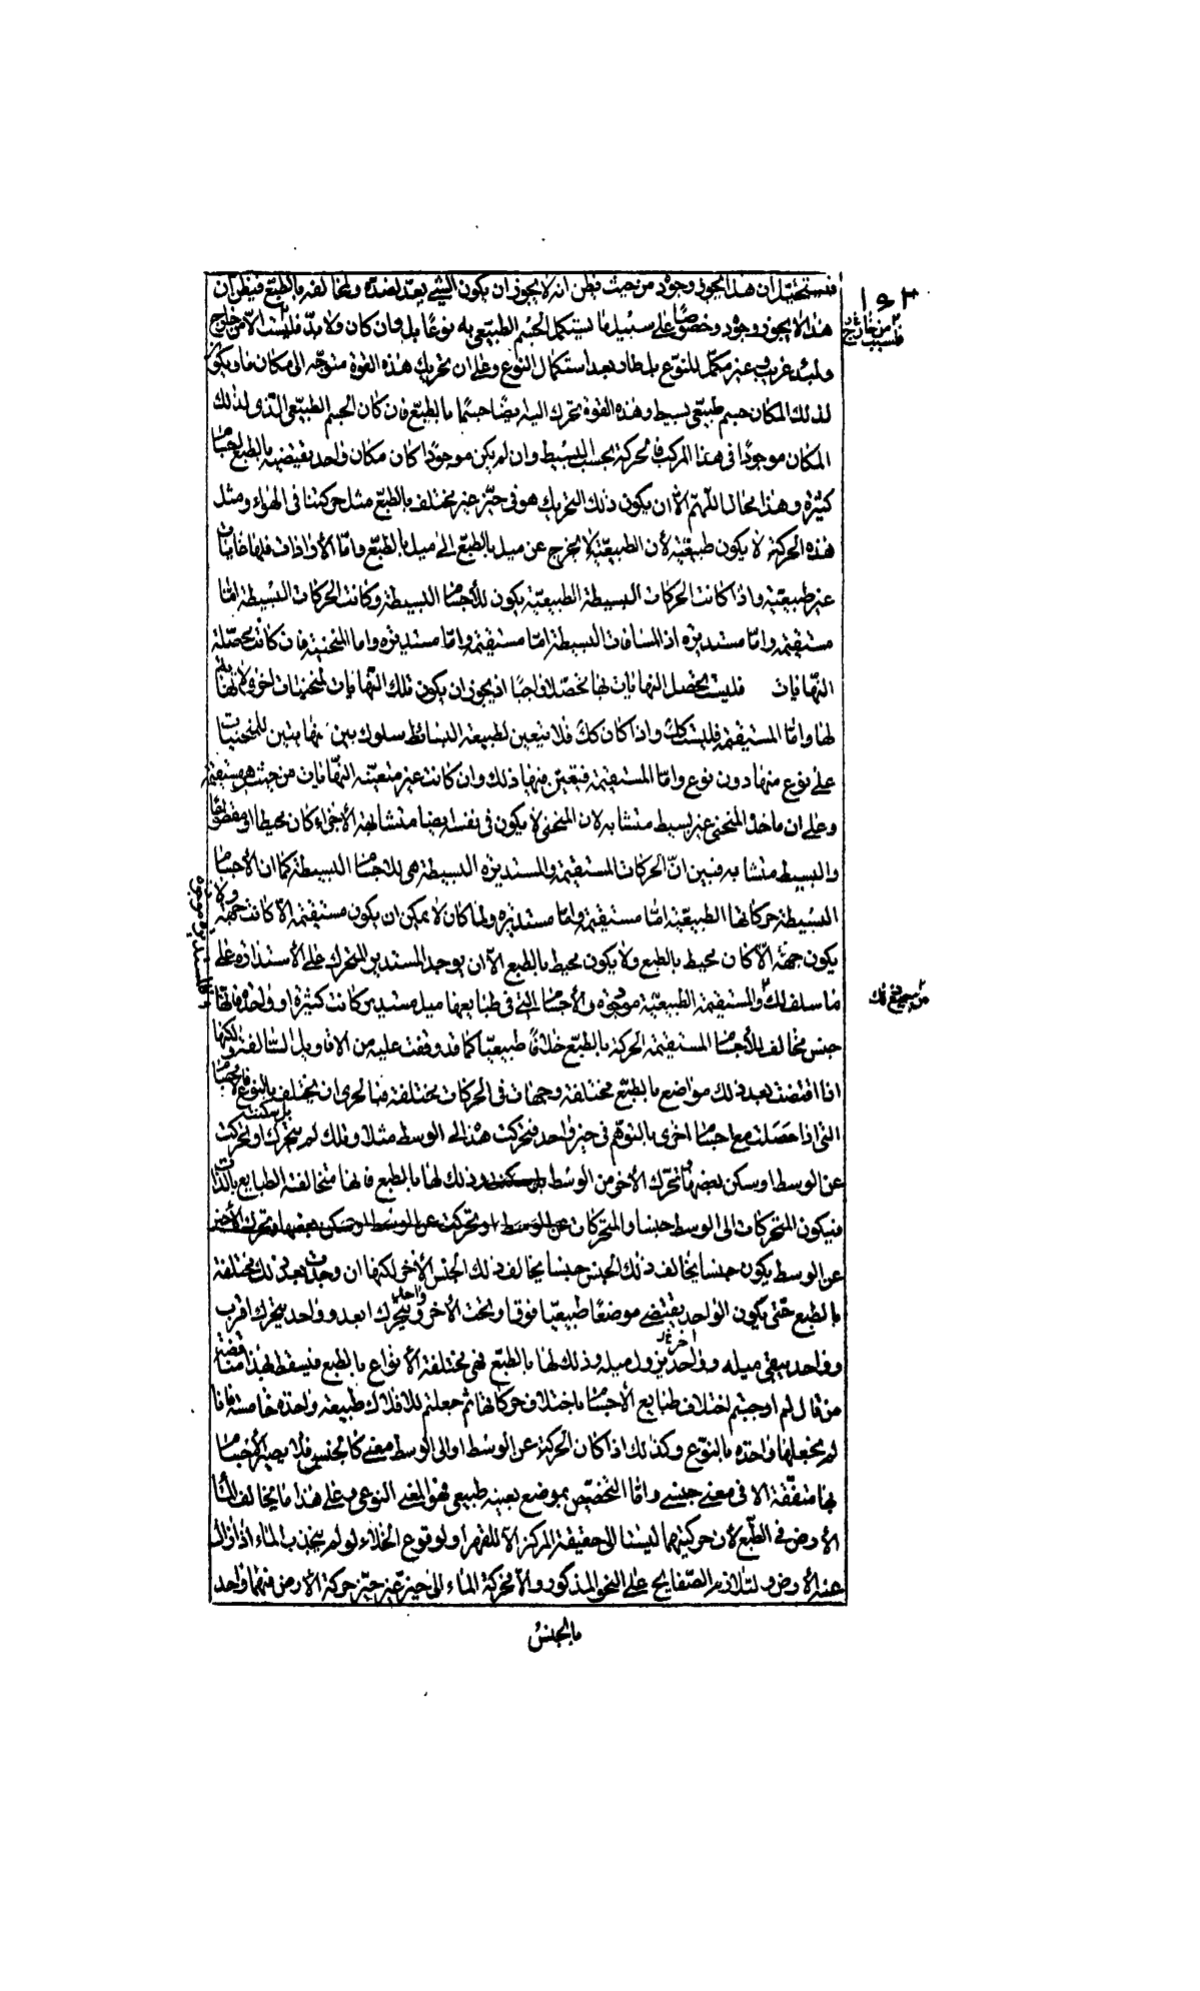 ١٥٣
فنستخيل ان هذا يجوز وجوده من حيث يظن انه لا يجوز ان يكون الشئ يعد لضده ولمخالفه بالطبع فيظن ان
هذا لا يجوز وجوده وخصوصًا على سبيل ما يستكمل الجسم الطبيعى به نوعًا بل وان كان ولا بدّ فليست الا من خارج
ولمبدء غريب غير مكمل للنوع بل طار بعد استكمال النوع وعلى ان تحريك هذه القوة متوجّه الى مكان ما ويكون
لذلك المكان جسم طبيعى بسيط وهذه القوة تحرك اليه ايضًا جسمًا بالطبع فان كان الجسم الطبيعى الذى لذلك
المكان موجودًا فى هذا المركب فالحركة بحسب البسيط وان لم يكن موجودًا كان مكان واحد يقتضيه بالطبع اجسام
كثيرة وهذا محال اللّهمّ الّا ان يكون ذلك التحريك هو فى حيّز غير مختلف بالطبع مثل حركتنا فى الهواء ومثل
هذه الحركة لا يكون طبيعية لأن الطبيعة لا يخرج عن ميل بالطبع الى ميل بالطبع وامّا الأرادات فلها غايات
غير طبيعيّة واذا كانت الحركات البسيطة الطبيعيّة يكون للأجسام البسيطة وكانت الحركات البسيطة امّا
مستقيمة وامّا مستديرة اذ المسافات البسيطة امّا مستقيمة وامّا مستديرة واما المنحنية فان كانت محصّلة
النهايات فليست يحصل النهايات لها تحصّلا واجبًا اذ يجوز ان يكون تلك النهايات لمنحنيات اخرى لا نهاية
لها وامّا المستقيمة فليست كك واذا كان كك فلا يتعين لطبيعة البسائط سلوك بين نهايتين للمنحنيات
على نوع منها دون نوع وامّا المستقيمة فيتعين فيها ذلك وان كانت غير متعيّنه النهايات من حيث هى مستقيمة
وعلى ان مأخذ المنحنى غير بسيط متشابه لان المنحنى لا يكون فى نفسه ايضا متشابه الأجزاء كان محيطا او مقطوعًا
والبسيط متشابه فبين انّ الحركات المستقيمة والمستديره البسيطة هى للاجسام البسيطة كما ان الأجسام
البسيطة حركاتها الطبيعية امّا مستقيمة وامّا مستديره ولما كان لا يمكن ان يكون مستقيمة الّا كانت جهة ولا
يكون جهة الّا كان محيط بالطبع ولا يكون محيط بالطبع الّا ان يوجد المستدير المتحرك على الأستدارة على
ما سلف لك والمستقيمة الطبيعيّة موجودة والأجسام التى فى طباعها ميل مستدير كانت كثيرة او واحدة فانها
جنس مخالف للأجسام المستقيمة الحركة بالطبع خلافًا طبيعيّا كما قد وقفت عليه من الاقاويل السّالفة ولكنها
اذا اقتضت بعد ذلك مواضع بالطبع مختلفة وجهات فى الحركات مختلفة فبالحرى ان يختلف بالنوع فالأجسام
التى اذا حصلت مع اجسام اخرى بالتوهم فى حيز واحد فتحركت هذه الى الوسط مثلا وتلك لم يتحرك اليه بل سكنت او تحركت
عن الوسط او سكن بعضها وتحرك الأخر من الوسط وذلك لها بالطبع فانها متخالفة الطبايع بالذات
فيكون المتحركات الى الوسط جنسا والمتحركات عن الوسط او تحركت عن الوسط او سكن بعضها وتحرك الأخر
عن الوسط يكون جنسا يخالف ذلك الجنس جنسا يخالف ذلك الجنس الأخر لكنها ان وجدت بعد ذلك مختلفة
بالطبع حتى يكون الواحد يقتضى موضعًا طبيعيّا فوق او تحت الأخر وواحد يتحرك ابعد وواحد يتحرك اقرب
وواحد يبقى ميله وواحد اخر يزول ميله وذلك لها بالطبع فهى مختلفة الأنواع بالطبع فيسقط بهذا مناقضة
من قال لم اوجبتم اختلاف طبايع الأجسام باختلاف حركاتها ثم جعلتم للافلاك طبيعة واحدة خامسة فانا
لم نجعلها واحدة بالنوع وكذلك اذا كان الحركة عن الوسط او الى الوسط معنى كالجنس فلا يصير الأجسام
بها متفقة الا فى معنى جنسى وامّا التخصيص بموضع بعينه طبيعى فهو المعنى النوعى وعلى هذا ما يخالف الماء
الأرض فى الطبع لأن حركتيهما ليستا الى حقيقة المركز الّا للقهر او لوقوع الخلاء لو لم ينجذب الماء اذا زال
عنه الأرض ولتلازم الصفايح على النحو المذكور والّا فحركة الماء الى حيز غير حيّز حركة الأرض فهما واحد
بالجنس